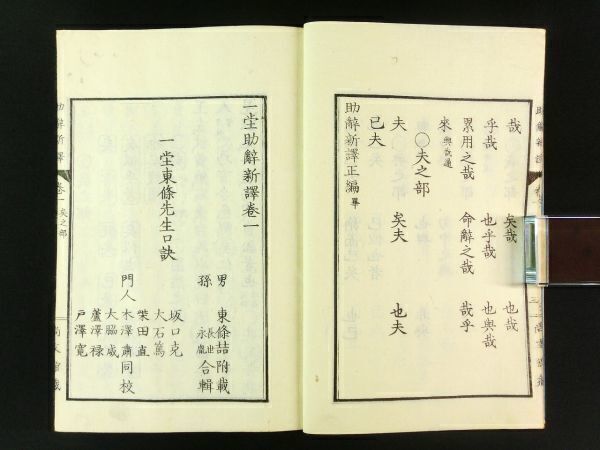 哉 矣哉 也哉
乎哉 也乎哉 也與哉
累用之哉 命辭之哉 哉乎
來與哉通
○夫之部
夫 矣夫 也夫
已夫
助辭新譯正編畢
一堂助辭新譯卷一
一堂東條先生口訣
男 東條喆附載
孫 長世 永胤 合輯
坂口克
大石篤
門人 柴田直 同校
木澤肅
大脇威
蘆澤祿
戸澤寬
助辭新譯 卷一 矣之部